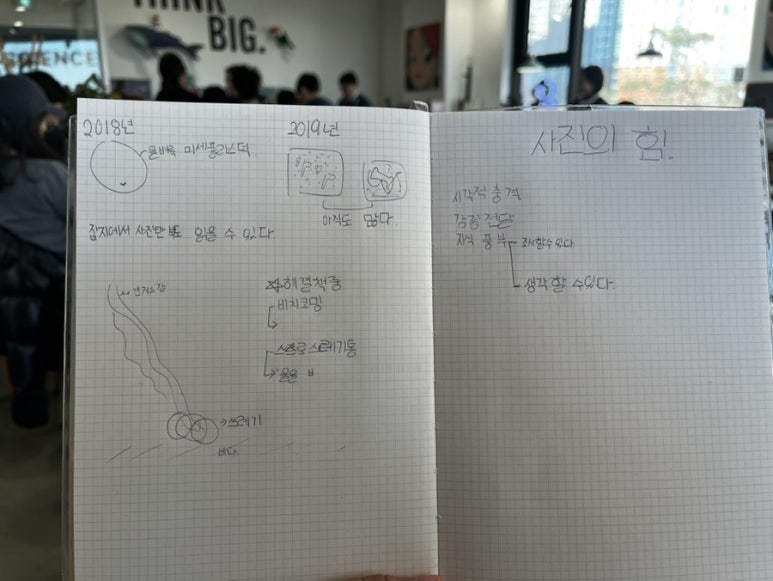 THINK
BIG.
SCIENCE
2018년
미세플라스틱
2019년
아직도 많다.
잡지에서 사진만 봐도 읽을 수 있다.
먼저
해결책중
비치코밍
쓰레기통
쓰레기
바다
사진의 힘!
시각적 충격
감정 전달
지식 풍부
조사할수있다
생각 할 수 있다.